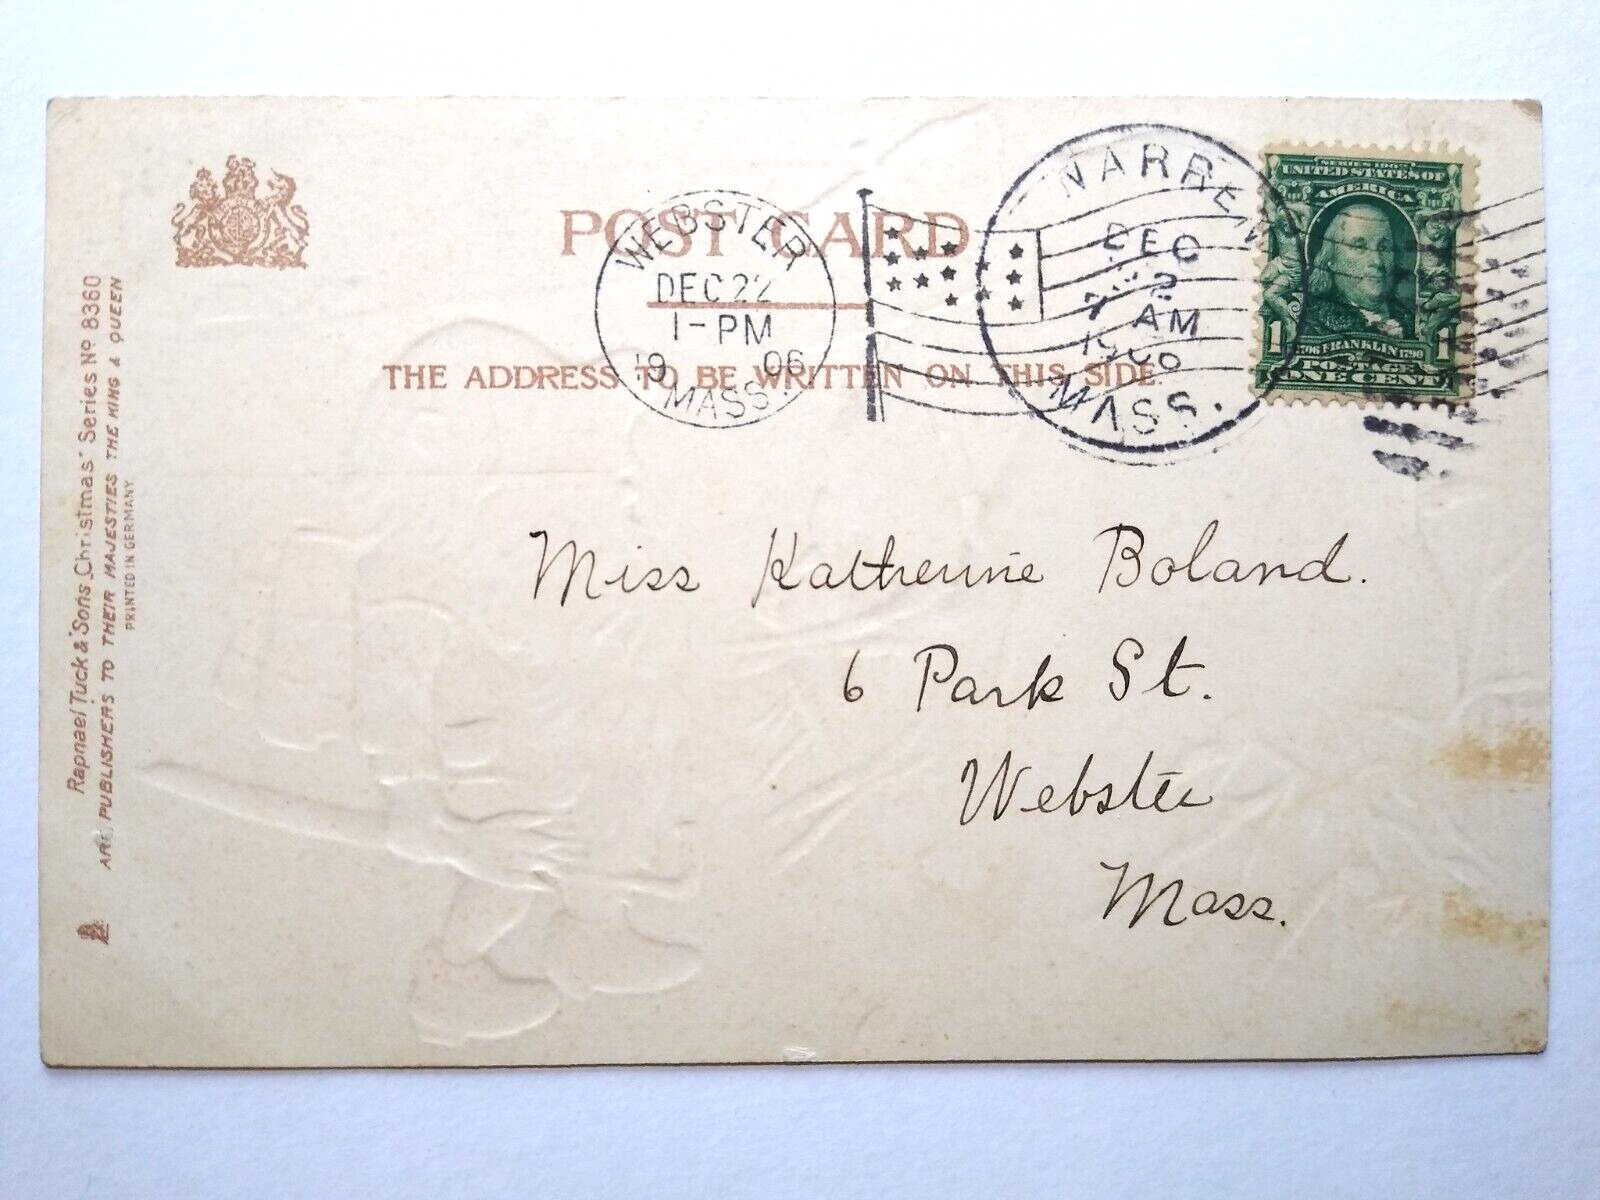 POST CARD
THE ADDRESS TO BE WRITTEN ON THIS SIDE.
WEBSTER
DEC 22
1-PM
19 06
MASS.
WARREN
DEC
22
7 AM
1906
MASS.
SERIES 1902
UNITED STATES OF
AMERICA
1 FRANKLIN 1790 1
POSTAGE
ONE CENT
Raphael Tuck & Sons "Christmas" Series No 8360
ART PUBLISHERS TO THEIR MAJESTIES THE KING & QUEEN
PRINTED IN GERMANY
Miss Katherine Boland.
6 Park St.
Webster
Mass.